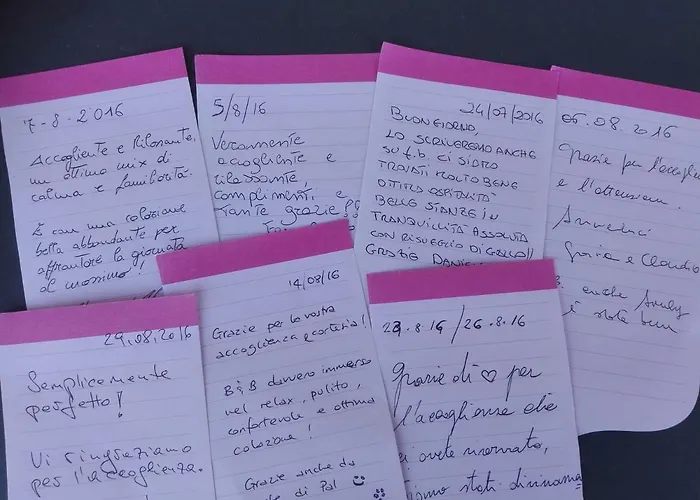 7-8-2016
Accogliente e Rilassante,
un ottimo mix di
calma e familiarità.
E con una colazione
bella abbondante per
affrontare la giornata
al massimo!
5/8/16
Veramente
accogliente e
rilassante,
complimenti, e
tante grazie!!
24/07/2016
BUONGIORNO,
LO SCRIVEREMO ANCHE
SU f.b. CI SIAMO
TROVATI MOLTO BENE
OTTIMA OSPITALITÀ
BELLE STANZE IN
TRANQUILLITÀ ASSOLUTA
CON RISVEGLIO DI GALLO!!
GRAZIE
05.08.2016
Grazie per l'accoglien
e l'attenzione.
Grazia e Claudio
anche Andy
è stato bene
29.08.2016
Semplicemente
perfetto!
Vi ringraziamo
per l'accoglienza.
14/08/16
Grazie per la vostra
accoglienza e cortesia!
B&B davvero immerso
nel relax, pulito,
confortevole e ottima
colazione!
Grazie anche da
di Pol
23.8.16/26.8.16
Grazie di ♡ per
l'accoglienza che
ci avete riservato,
stati divinama